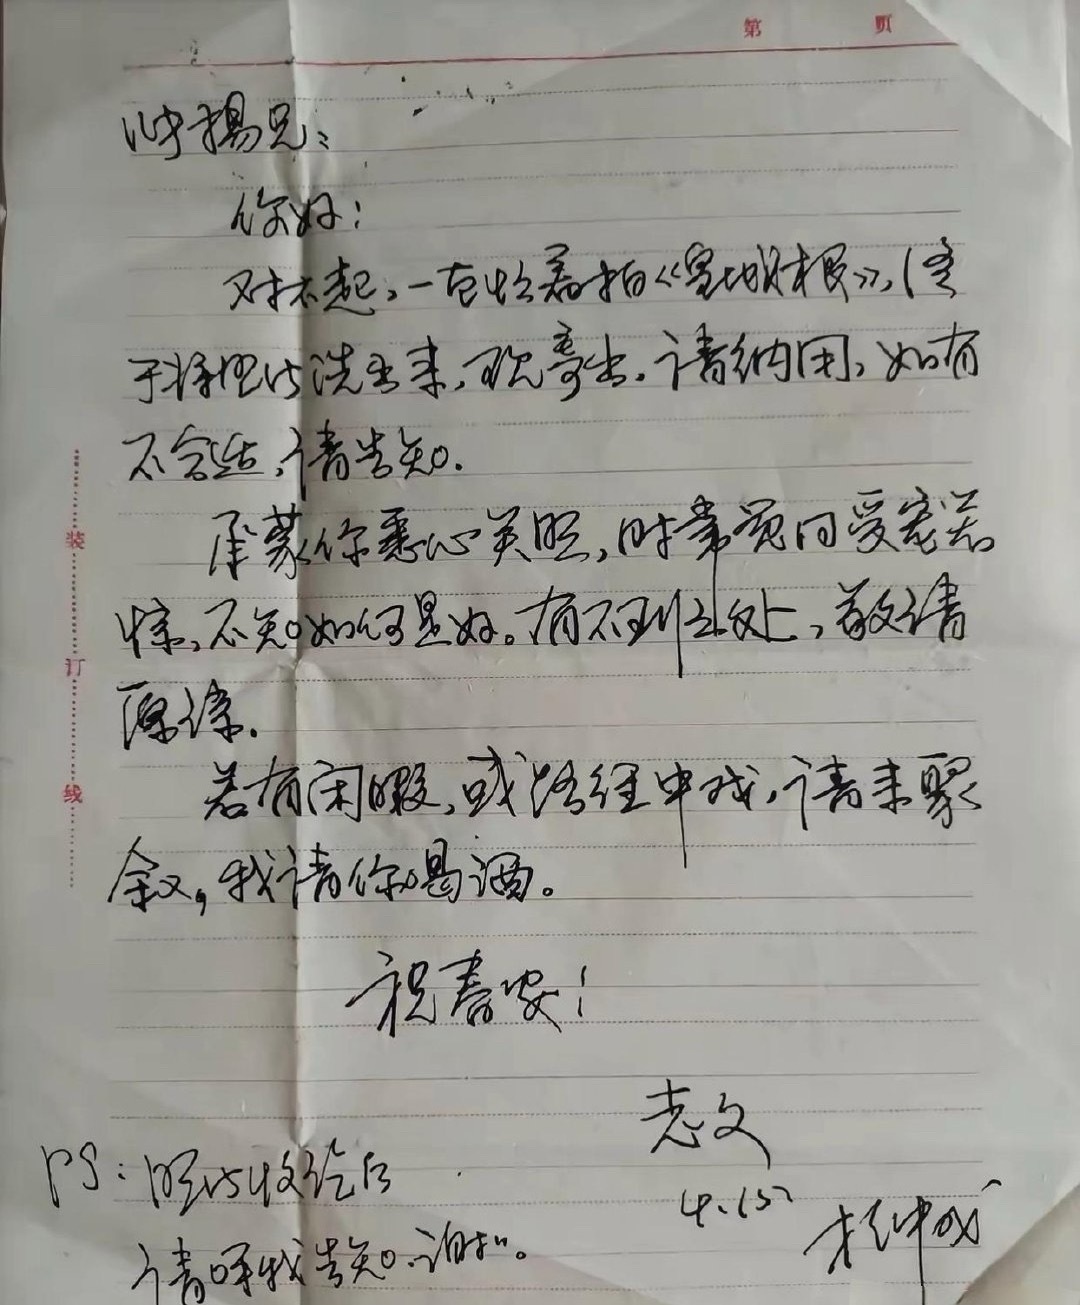 第 页
冲揚兄:
你好!
对不起,一直忙着拍《皇城根》,
于将照片洗出来,现寄出,请纳用,如有
不合适,请告知.
承蒙你悉心关照,时常觉得受宠若
惊,不知如何是好。有不到之处,敬请
原谅.
若有闲暇,或路经中戏,请来聚
叙,我请你喝酒。
祝春安!
志文
4.15
PS:照片收讫后
请呼我告知.谢谢。
装
订
线